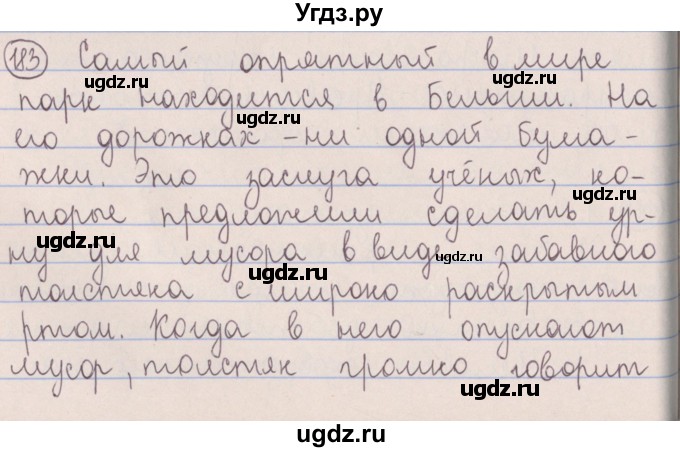 Угдз.ру
183 Самый опрятный в мире
ugdz.ru ugdz.ru
парк находится в Бельгии. На
ugdz.ru ugdz.ru
его дорожках - ни одной бума-
жки. Это заслуга учёных, ко-
ugdz.ru
торые предложили сделать ур-
ugdz.ru ugdz.ru
ну для мусора в виде забавного
ugdz.ru
толстяка с широко раскрытым
ugdz.ru
ртом. Когда в него опускают
мусор, толстяк громко говорит
ugdz.ru
ugdz.ru